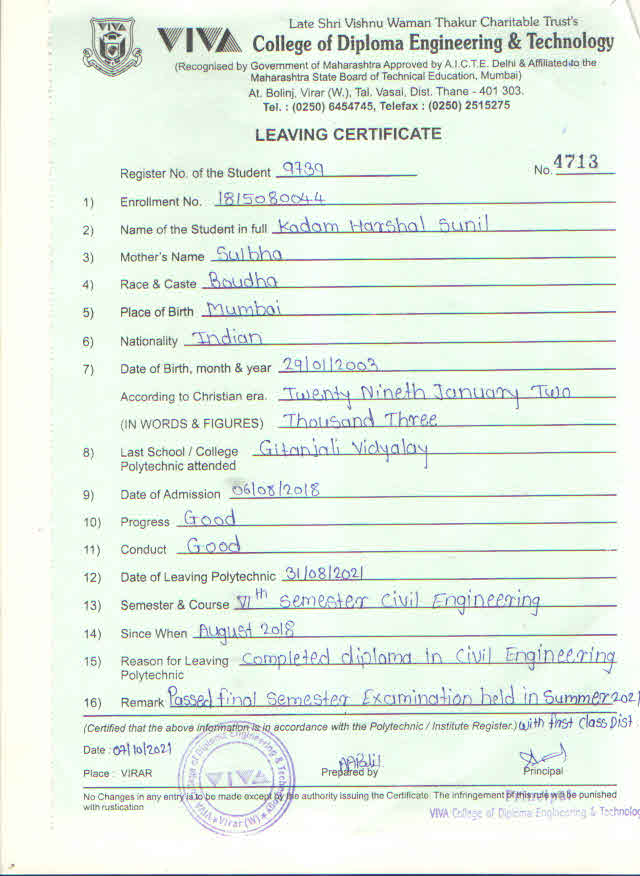 Late Shri Vishnu Waman Thakur Charitable Trust's
VIVA
VIVA College of Diploma Engineering & Technology
(Recognised by Government of Maharashtra Approved by A.I.C.T.E. Delhi & Affiliated to the
Maharashtra State Board of Technical Education, Mumbai)
At. Bolinj, Virar (W.), Tal. Vasai, Dist. Thane - 401 303.
Tel. : (0250) 6454745, Telefax : (0250) 2515275
LEAVING CERTIFICATE
Register No. of the Student 9739 No. 4713
1) Enrollment No. 1815080044
2) Name of the Student in full Kadam Harshal Sunil
3) Mother's Name Sulbha
4) Race & Caste Boudha
5) Place of Birth Mumbai
6) Nationality Indian
7) Date of Birth, month & year 29/01/2003
According to Christian era. Twenty Nineth January Two
(IN WORDS & FIGURES) Thousand Three
8) Last School / College Gitanjali Vidyalay
Polytechnic attended
9) Date of Admission 06/08/2018
10) Progress Good
11) Conduct Good
12) Date of Leaving Polytechnic 31/08/2021
13) Semester & Course VIth semester Civil Engineering
14) Since When August 2018
15) Reason for Leaving Completed diploma in Civil Engineering
Polytechnic
16) Remark Passed final Semester Examination held in Summer 2021
(Certified that the above information is in accordance with the Polytechnic / Institute Register.) with first class Dist.
Date : 07/10/2021
Place : VIRAR
Prepared by
Principal
VIVA College of Diploma Engineering & Technology
VIVA
Virar (W)
No Changes in any entry is to be made except by the authority issuing the Certificate. The infringement of this rule will be punished
with rustication
Principal
VIVA College of Diploma Engineering & Technolog